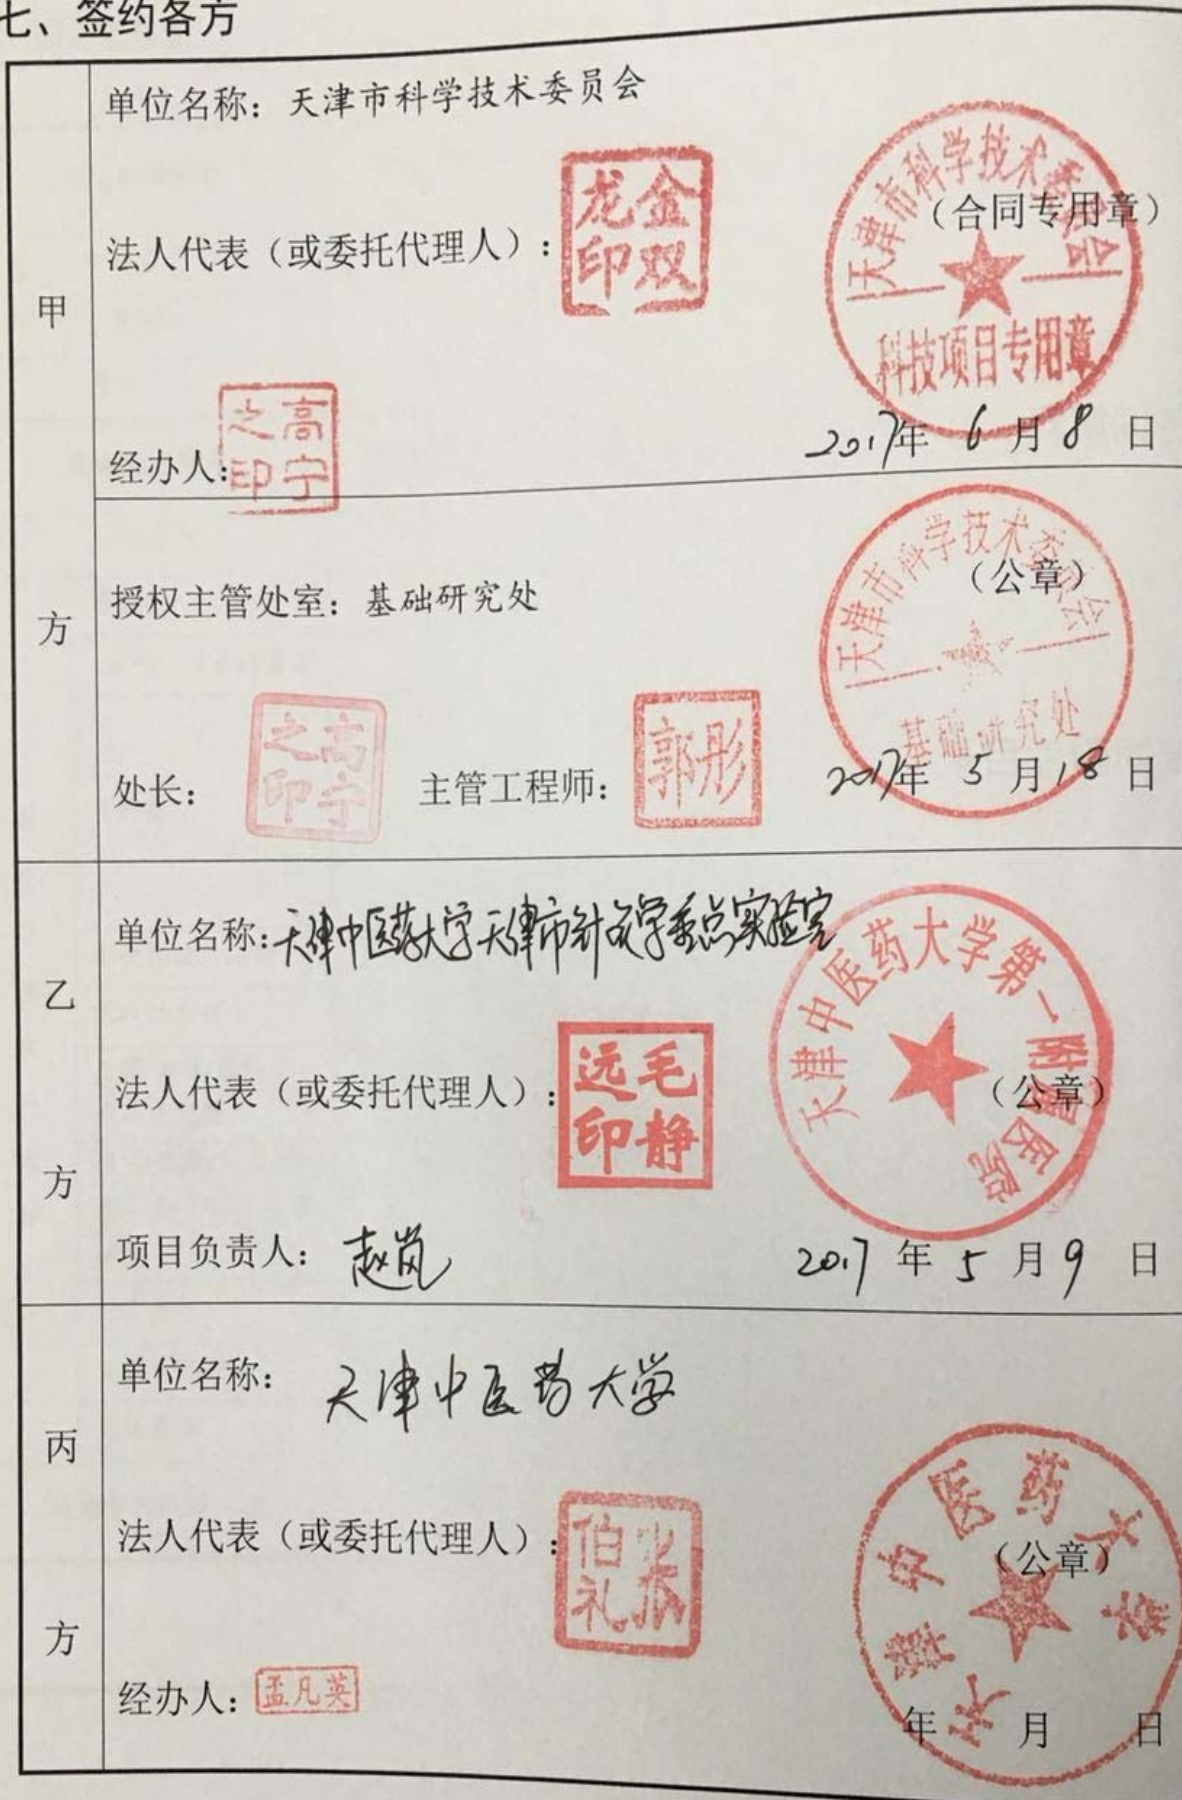 七、签约各方
甲方
单位名称：天津市科学技术委员会
法人代表（或委托代理人）：
金双龙印
天津市科学技术委员会
科技项目专用章
（合同专用章）
经办人：
高宁之印
2017年 6月 8日
授权主管处室：基础研究处
天津市科学技术委员会
基础研究处
（公章）
处长：
高宁之印
主管工程师：
郭彤
2017年 5月18日
乙方
单位名称：天津中医药大学天津市针灸学重点实验室
天津中医药大学第一附属医院
法人代表（或委托代理人）：
毛静远印
（公章）
项目负责人：赵岚
2017年 5月 9日
丙方
单位名称：天津中医药大学
法人代表（或委托代理人）：
张伯礼
天津中医药大学
（公章）
经办人：
孟凡英
年 月 日